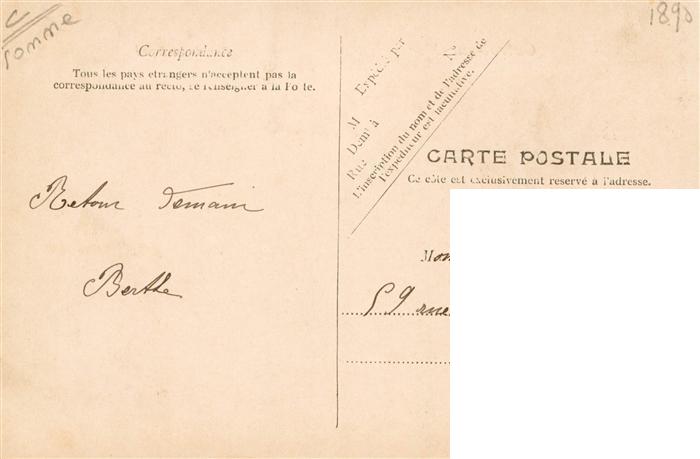 Somme
1890
Correspondance
Tous les pays etrangers n'acceptent pas la
correspondance au recto, se renseigner à la Poste.
Expédié par
N°
M
Demt à
Rue
L'inscription du nom et de l'adresse de
l'expéditeur est facultative.
CARTE POSTALE
Ce côté est exclusivement reservé à l'adresse.
Retour Demain
Berthe
Mon
59 rue